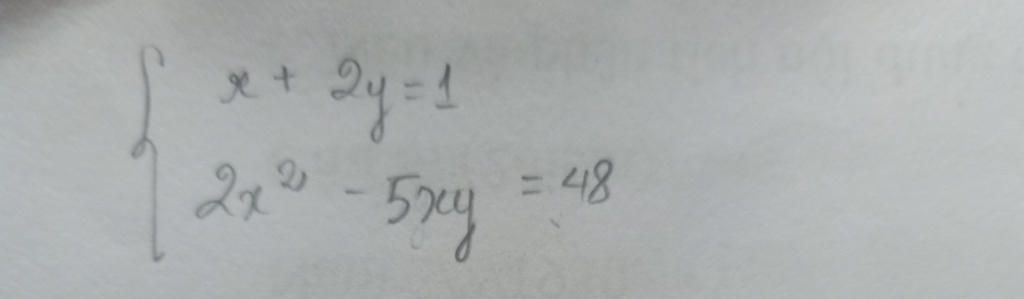 x + 2y = 1
2x² - 5xy = 48